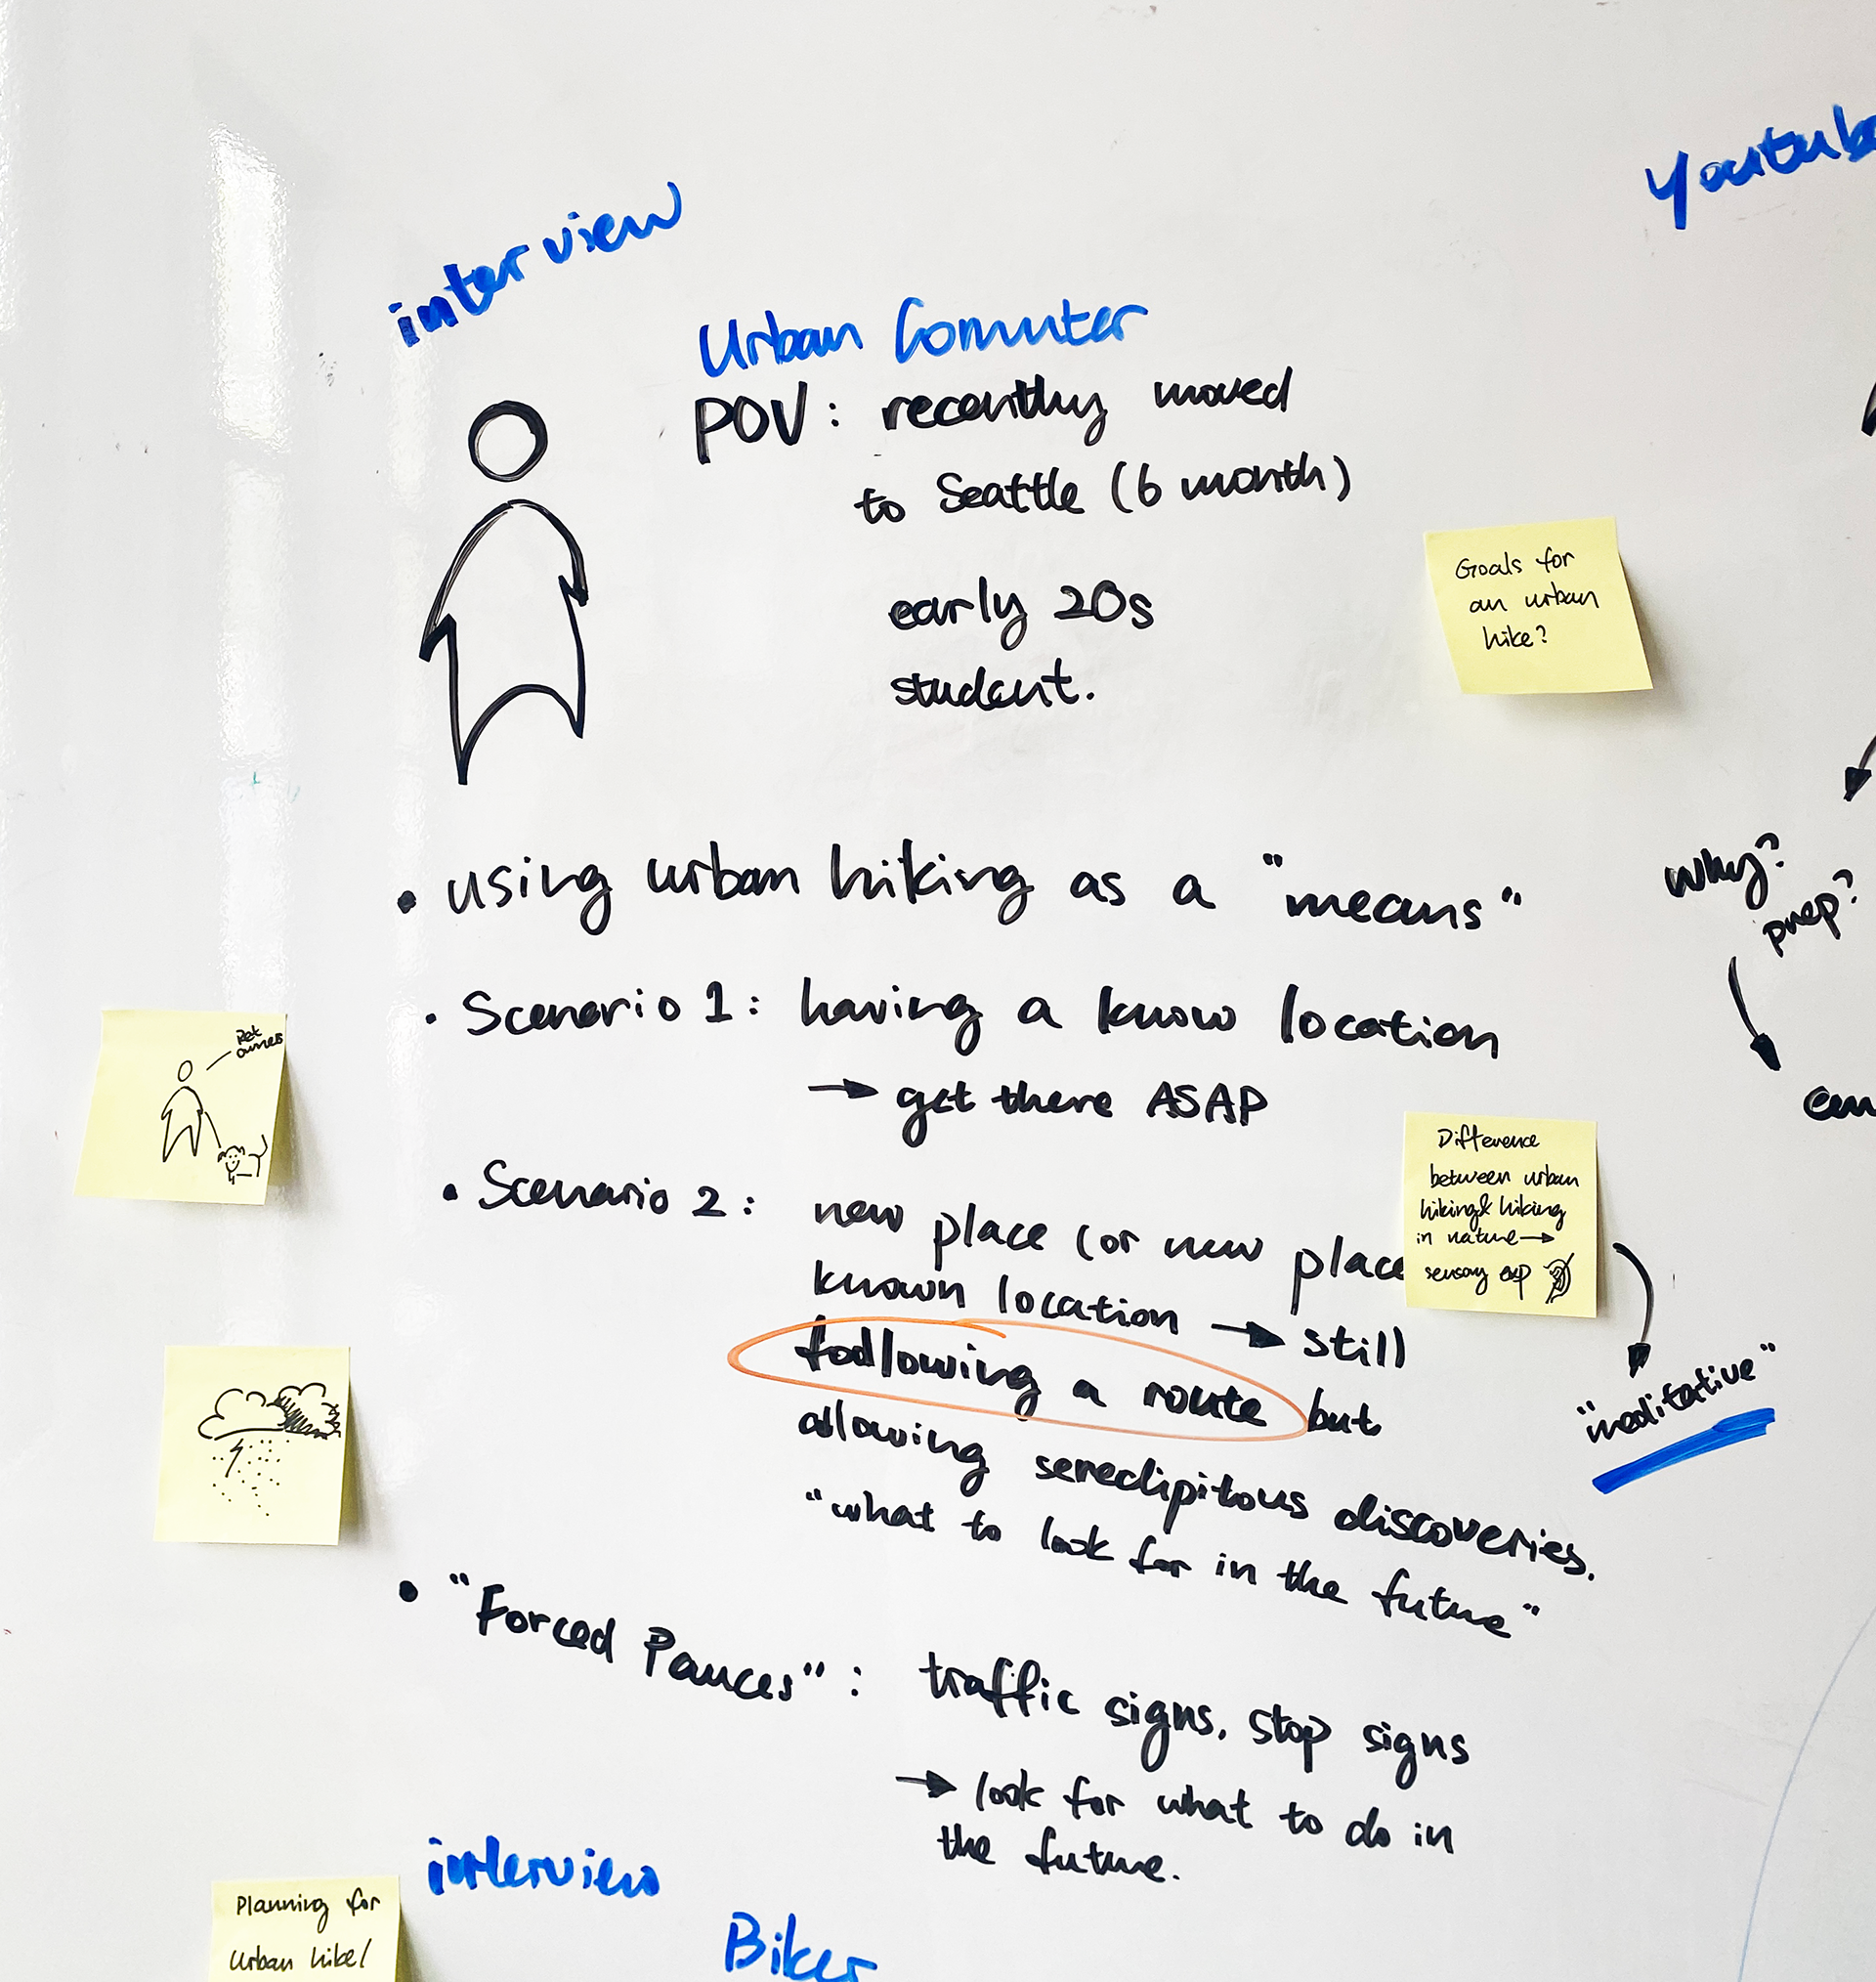 Youtube
interview
Urban Comuter
POV: recently moved
to Seattle (6 month)
early 20s
student.
Goals for
an urban
hike?
• using urban hiking as a "means"
• Scenario 1: having a know location
→ get there ASAP
• Scenario 2: new place (or new place
known location → still
following a route but
allowing seredipitous discoveries.
"what to look for in the future"
• "Forced Pauces": traffic signs, stop signs
→ look for what to do in
the future.
Why?
prep?
Pet
owner
Difference
between urban
hiking & hiking
in nature →
sensory exp
"meditative"
interview
Biker
Planning for
urban hike/